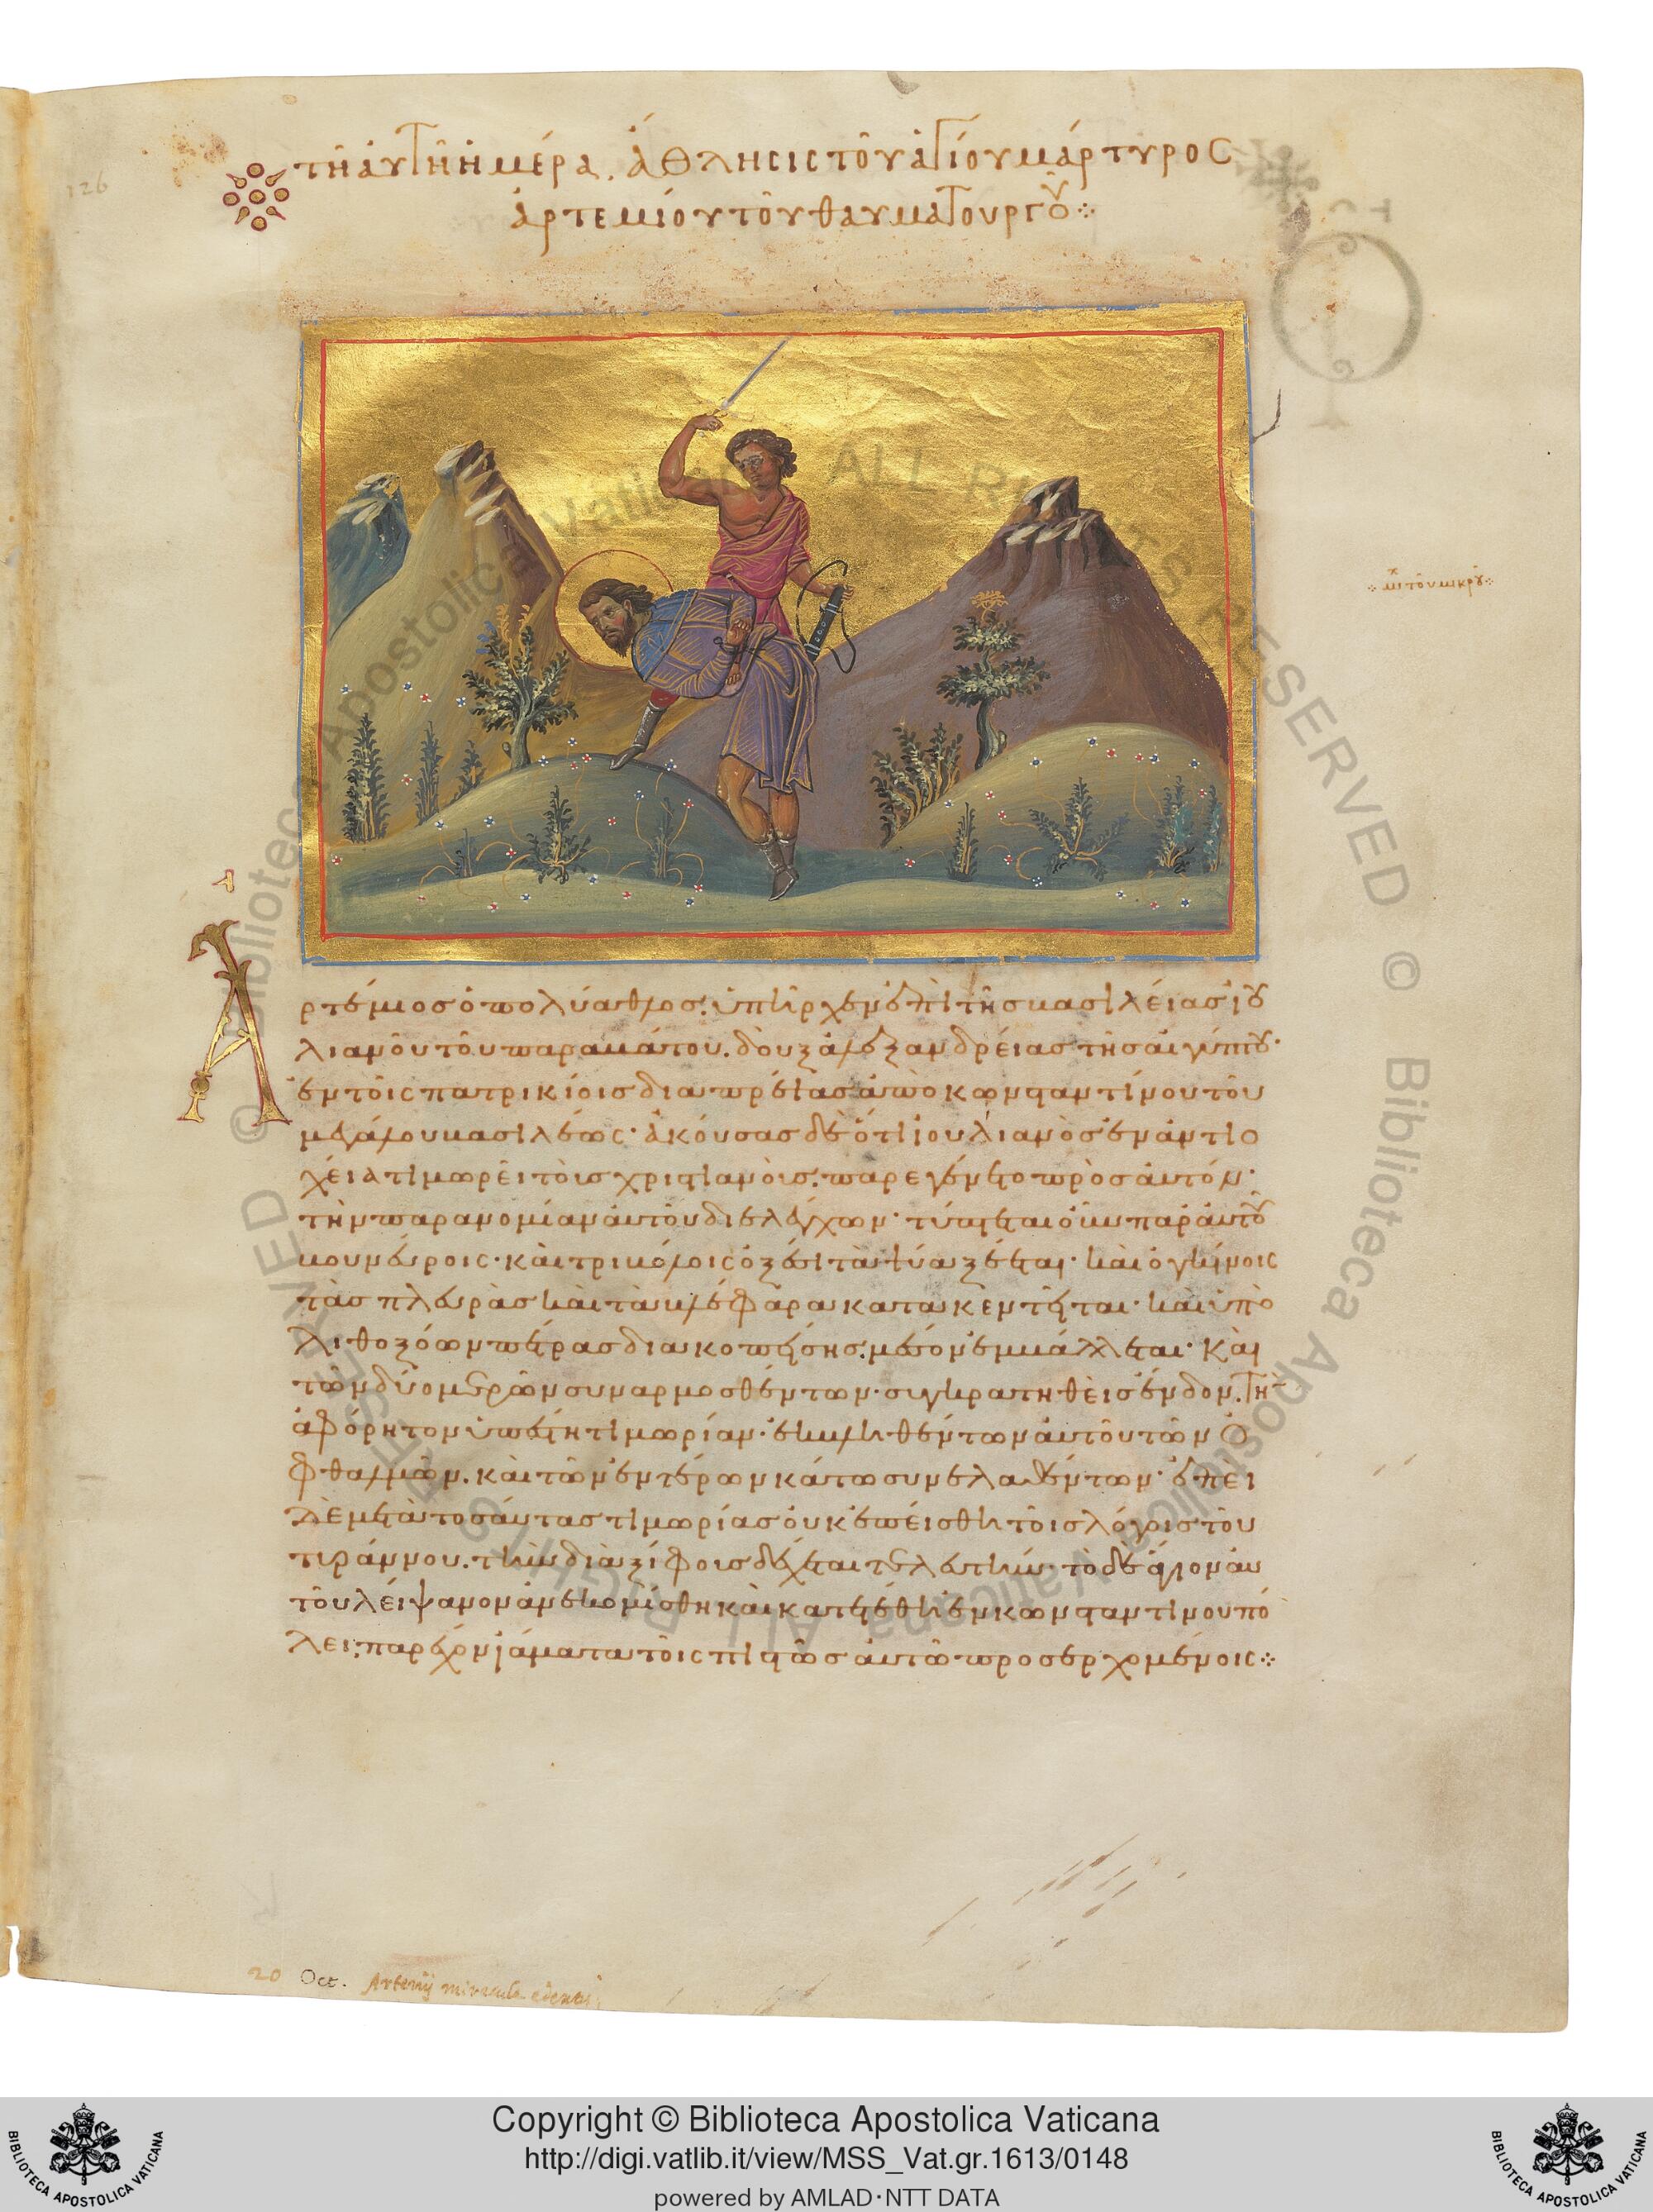 126
τῆ αὐτῆ ἡμέρα. ἄθλησις τοῦ ἁγίου μάρτυρος
ἀρτεμίου τοῦ θαυματουργοῦ
μι τοῦ μικροῦ
Ἀ
ρτέμιος ὁ πολύαθλος, ὑπῆρχεν ἐπὶ τῆς βασιλείας ἰου
λιανοῦ τοῦ παραβάτου. δοὺξ ἀλεξανδρείας τῆς αἰγύπτου.
ἐν τοῖς πατρικίοις διαπρέψας ἀπὸ κωνσταντίνου τοῦ
μεγάλου βασιλέως. ἀκούσας δὲ ὅτι ἰουλιανὸς ἐν ἀντιο
χεία τιμωρεῖ τοὺς χριστιανοὺς, παρεγένετο πρὸς αὐτόν.
τὴν παρανομίαν αὐτοῦ διελέγχων. τύπτεται οὖν παρ' αὐτοῦ
βουνεύροις. καὶ τριβόλοις ὀξέσι τὰ νῶτα ξέεται. καὶ ὀγκίνοις
τὰς πλευρὰς καὶ τὰ βλέφαρα κατακεντεῖται. καὶ ὑπὸ
λιθοξόων πέτρας διακοπείσης, μέσον ἐμβάλλεται. καὶ
τῶν δύο μερῶν συναρμοσθέντων. συγκρατηθεὶς ἔνδον. τὴν
ἀφόρητον ὑπέστη τιμωρίαν. ἐκβληθέντων αὐτοῦ τῶν ὀ
φθαλμῶν. καὶ τῶν ἐντέρων κάτω συνελαθέντων. ἐπεὶ
δὲ μετὰ τοσαύτας τιμωρίας οὐκ ἐπείσθη τοῖς λόγοις τοῦ
τυράννου. τὴν διὰ ξίφους δέχεται τελευτήν. τὸ δὲ ἅγιον αὐ
τοῦ λείψανον ἀνεκομίσθη καὶ κατετέθη ἐν κωνσταντίνου πό
λει, παρέχον ἰάματα τοῖς πιστῶς αὐτῶ προσερχομένοις
20 Oct. Artemij miracula edentis
Copyright © Biblioteca Apostolica Vaticana
http://digi.vatlib.it/view/MSS_Vat.gr.1613/0148
powered by AMLAD·NTT DATA
BIBLIOTECA APOSTOLICA VATICANA
BIBLIOTECA APOSTOLICA VATICANA
© Biblioteca Apostolica Vaticana ALL RIGHTS RESERVED © Biblioteca Apostolica Vaticana ALL RIGHTS RESERVED